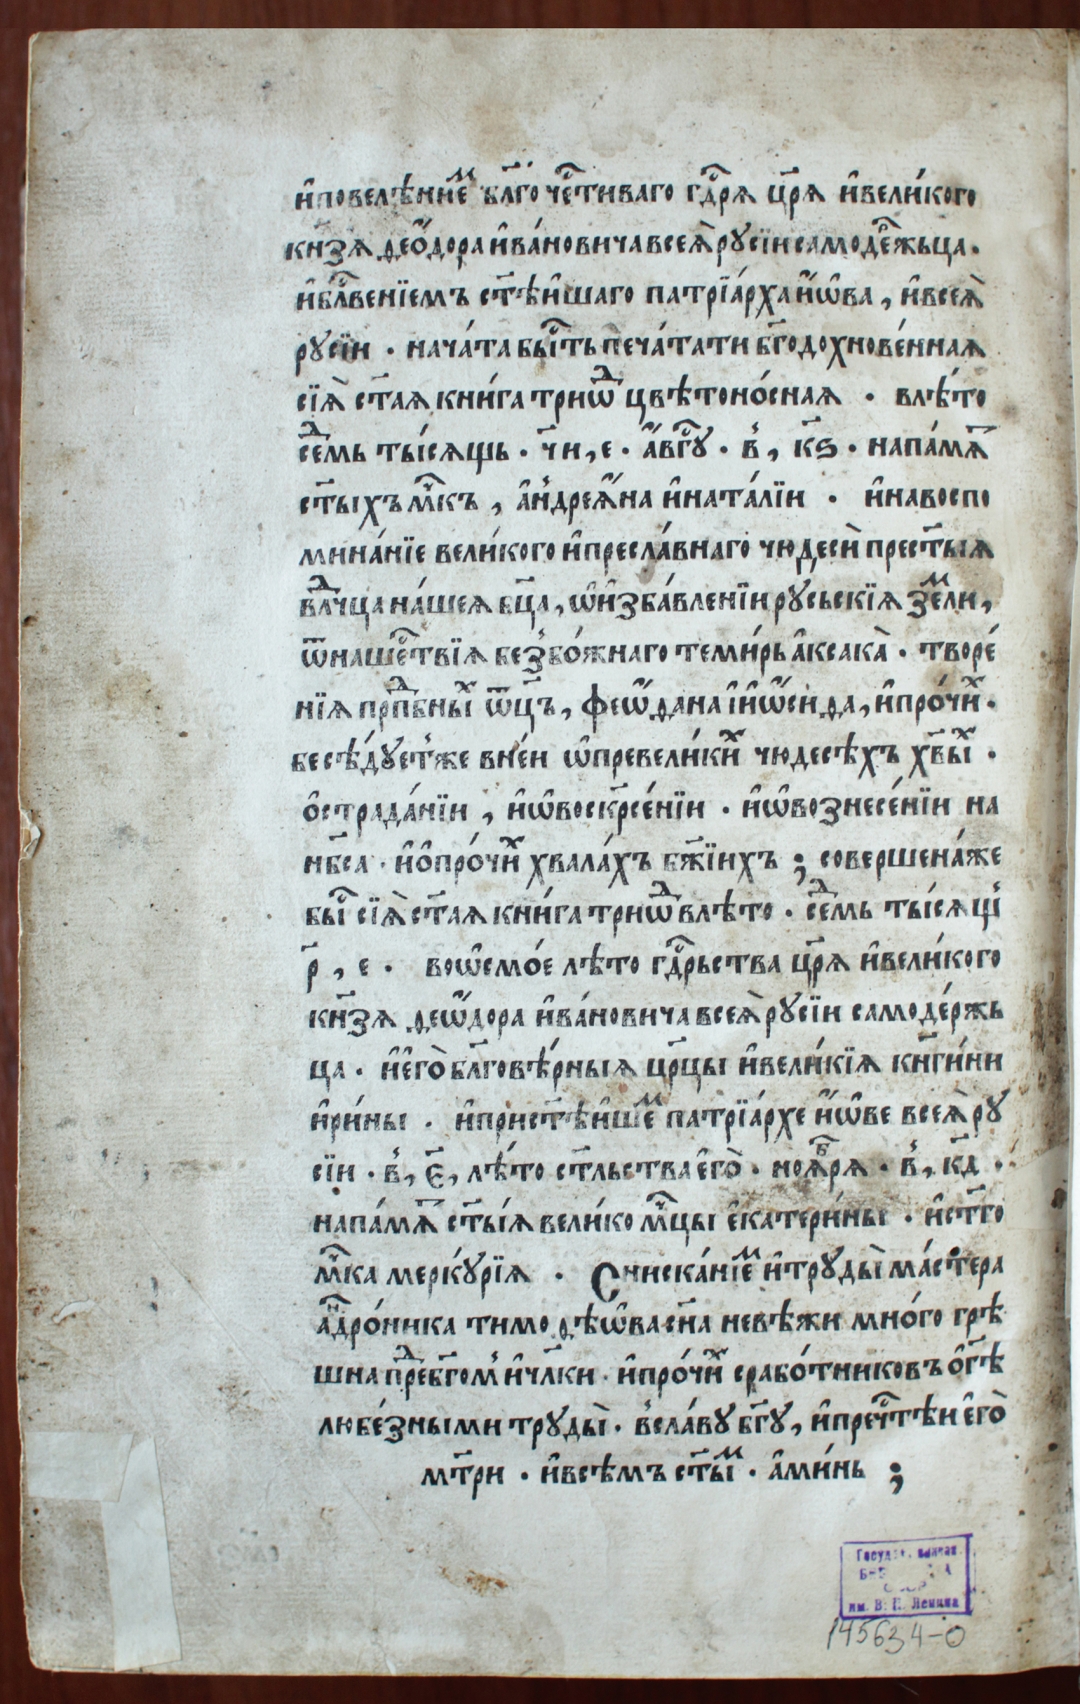 и҆повелѣнїеⷨ бл҃гочеⷭ҇тиваго гдⷭ҇рѧ цр҃ѧ и҆вели́кого
кн҃зѧ ѳео́дора и҆ва́новичавсеѧ̀ рꙋсїи самодеⷬ҇жьца .
и҆бл҃венїемъ ст҃ѣи҆шаго патрїа́рха и҆́ѡва , и҆всеѧ̀
рꙋсїи . нача́та бы́ⷭ҇ть печа́тати бг҃одохнове́ннаѧ
сїѧ̀ ст҃аѧ кни́га триѡⷣ цвѣтоно́снаѧ . влѣ́то
сеⷣмь ты́сѧщь . ч҃и , е . а҆́вгⷭ҇ꙋ . в҆ , к҃ѕ . напа́мѧⷮ
ст҃ыхъ мⷱ҇къ , а҆ндреѧ́на и҆ната́лїи . и҆навоспо
мина́нїе вели́кого и҆пресла́внаго чюдесѝ прест҃ыѧ
влⷣчца на́шеѧ бц҃а , ѡ҆и҆зба́вленїи рꙋсьскїѧ зеⷨли ,
ѿнашеⷭ҇твїѧ безбо́жнаго теми́рь а҆ксака̀ . творе́
нїѧ прпⷣбныⷯ ѿц҃ъ , ѳеѡ́фана і҆и҆ѡ́сифа , и҆про́чиⷯ .
бесѣ́дꙋетже вне́и ѡ҆превели́киⷯ чюдесѣхъ хв҃ыⷯ .
ѻ҆страда́нїи , и҆ѡ҆воскр҃се́нїи . и҆ѡ҆вознесе́нїи на
нб҃са . и҆ѻ҆про́чиⷯ хвала́хъ бж҃їихъ ; соверше́на́же
быⷭ҇ сїѧ̀ ст҃аѧ кни́га триѡⷣ влѣ́то . сеⷣмь ты́сѧщ
р҃ , е . воѡ҆смо́е лѣ́то гдⷭ҇рьства цр҃ѧ и҆вели́кого
кн҃зѧ ѳеѡ́дора и҆ва́новичавсеѧ̀ рꙋсїи самоде́ржь
ца . и҆є҆го̀ бл҃говѣ́рныѧ цр҃цы и҆вели́кїѧ кнг҃и́ни
и҆ри́ны . и҆прист҃ѣи҆шеⷨ патрїа́рхе и҆́ѡве всеѧ̀ рꙋ
сїи . в҆ , є҃ , лѣ́то ст҃льства є҆го̀ . ноѧ́ⷠрѧ . в҆ , к҃д .
напа́мѧⷮ ст҃ы́ѧ вели́комⷱ҇цы є҆катери́ны . и҆ст҃го
мⷱ҇ка мерꙋ́рїѧ . Снискані́еⷨ и҆трꙋды̀ ма́стера
аⷩ҇дро́ника тимоѳѣѡ҆ва сн҃а невѣ́жи мно́го грѣ
шна преⷣбг҃омъ и҆чл҃ки . и҆про́чиⷯ срабо́тниковъ ѻ҆г҃ѣ
любе́зными трꙋды̀ . всла́вꙋ бг҃ꙋ , и҆пречⷭ҇тѣи є҆го̀
мт҃ри . и҆всѣмъ ст҃ыⷨ . а҆ми́нь ;
им. В. И. Ленина
145634-О